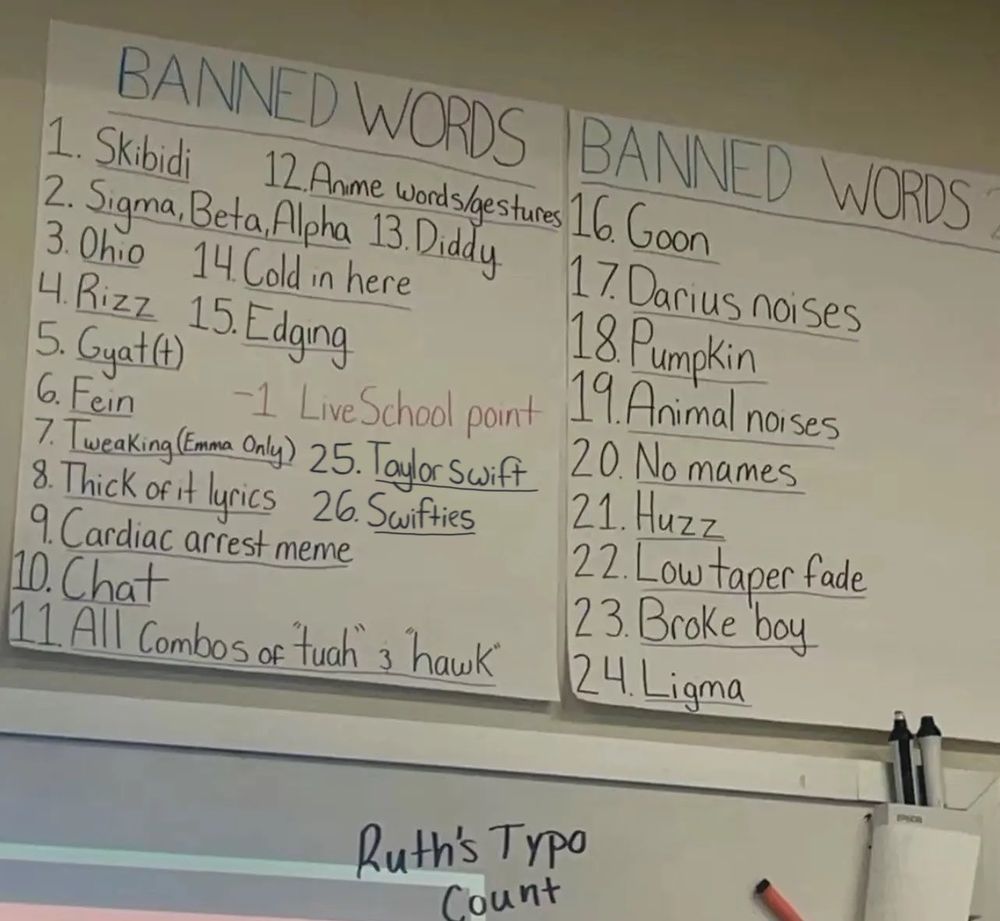 BANNED WORDS
1. Skibidi
2. Sigma, Beta, Alpha
3. Ohio
4. Rizz
5. Gyat(t)
6. Fein
7. Tweaking (Emma Only)
8. Thick of it lyrics
9. Cardiac arrest meme
10. Chat
11. All combos of "tuah" & "hawk"
12. Anime words/gestures
13. Diddy
14. Cold in here
15. Edging
-1 LiveSchool point
25. Taylor Swift
26. Swifties
BANNED WORDS 2
16. Goon
17. Darius noises
18. Pumpkin
19. Animal noises
20. No mames
21. Huzz
22. Low taper fade
23. Broke boy
24. Ligma
EPSON
Ruth's Typo
Count